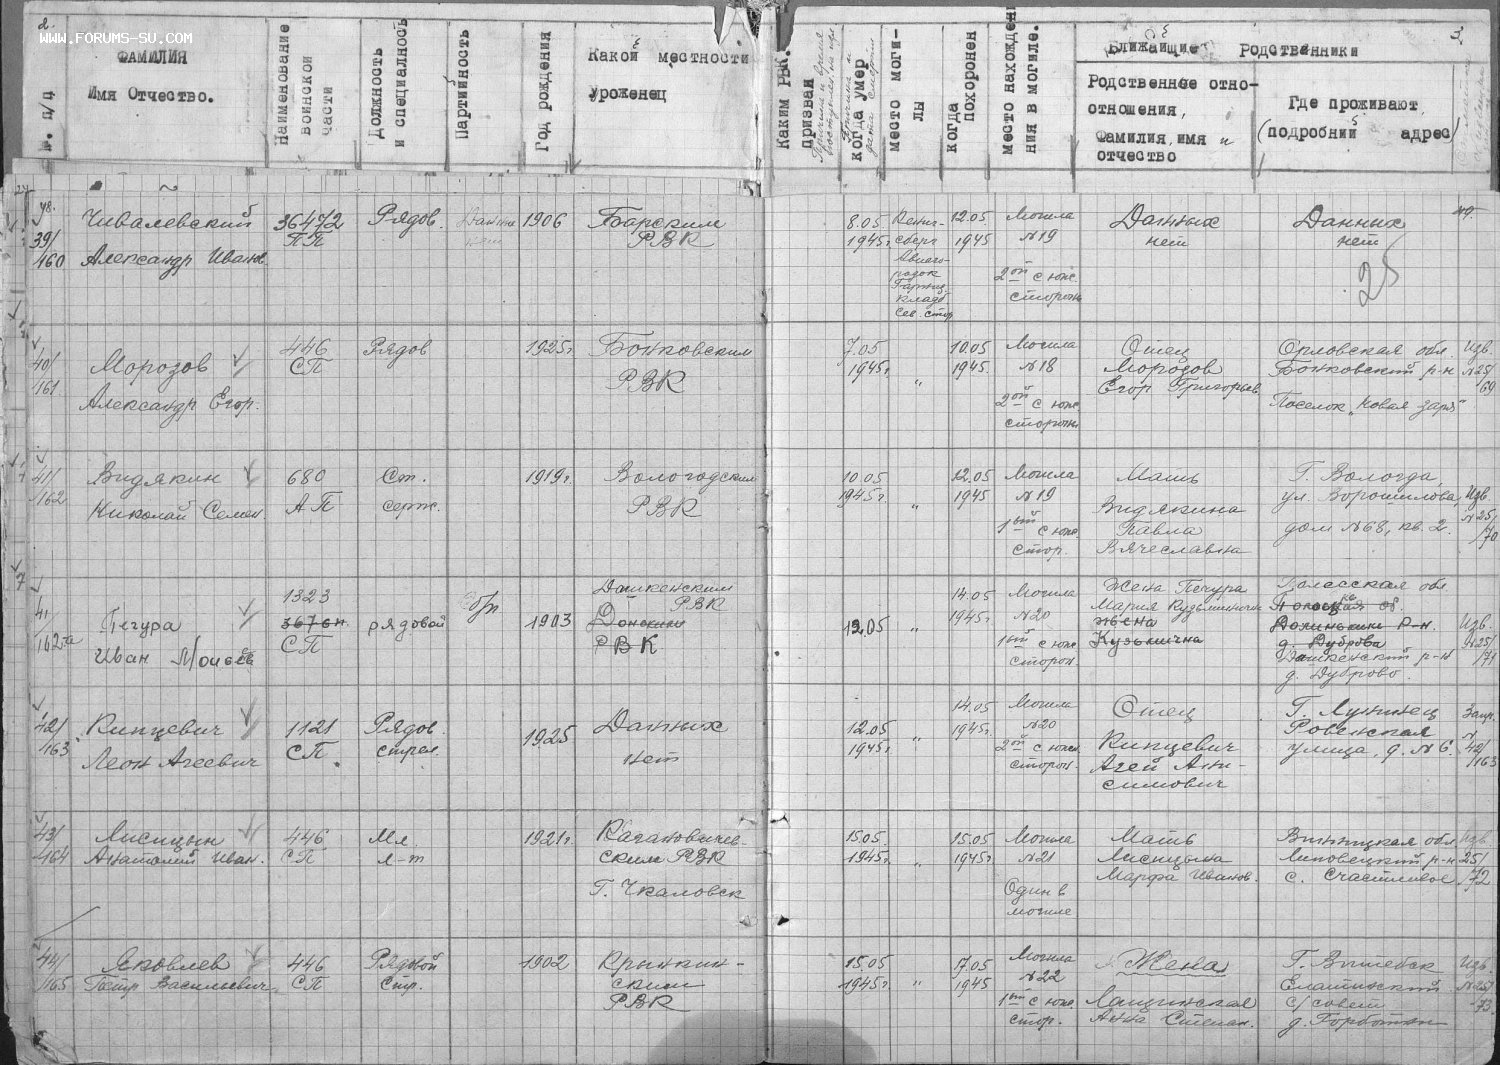 2.
WWW.FORUMS-SU.COM
ФАМИЛИЯ
Имя Отчество.
Наименование
воинской
части
Должность
и специальность
Партийность
Год рождения
Какой местности
уроженец
Каким РВК.
призван
когда умер
место моги-
лы
когда
похоронен
место нахождения
в могиле.
Ближайшие Родственники
Родственные отно-
отношения,
фамилия, имя и
отчество
Где проживают
(подробний адрес)
3
39/
160
Чивалевский
Александр Иванов.
36472
ПП
Рядов.
Данных
нет
1906
Барским
РВК
8.05
1945г.
Кениг-
сберг
Авиаго-
родок
Гарниз.
кладб.
Сев. стор
12.05
1945
Могила
№19
2ой с южн.
стороны
Данных
нет
Данных
нет
25
40/
161
Морозов
Александр Егор.
446
СП
Рядов
1925г
Бонковским
РВК
7.05
1945г.
"
10.05
1945.
Могила
№18
2ой с южн.
стороны
Отец
Морозов
Егор Григорьев.
Орловская обл.
Бонковский р-н
Поселок „Новая заря"
Изв.
№25/
69
41/
162
Видякин
Николай Семен.
680
АП
Ст.
серж.
1919г.
Вологодским
РВК
10.05
1945г
"
12.05
1945
Могила
№19
1ый с южн.
стор.
Мать
Видякина
Павла
Вячеславна
Г. Вологда,
ул. Ворошилова,
дом №68, кв. 2.
Изв.
№25/
70
41/
162-а
Печура
Иван Моисеев
1323
367 сп.
СП
б/п
рядовой
1903
Дашкенским
РВК
Донским
РВК
12.05
"
14.05
1945г.
Могила
№20
1ый с южн.
сторон.
Жена Печура
Мария Кузьминична
жена
Кузьмична
Полесская обл.
Долинским р-н.
д. Дуброва
Дашкенский р-н
д. Дуброво.
Изв.
№25/
71
42/
163
Кипцевич
Леон Агеевич
1121
СП.
Рядов.
стрел.
1925
Данных
нет
12.05
1945г.
"
14.05
1945г.
Могила
№20
2ой с южн.
сторон.
Отец
Кипцевич
Агей Ани-
симович
Г. Лунинец
Ровенская
улица, д. №6.
Запр.
№
42/
163
43/
164
Лисицын
Анатолий Иван.
446
СП
Мл.
л-т
1921г.
Кагановичев-
ским РВК
Г. Чкаловск
15.05.
1945г.
"
15.05
1945г
Могила
№21
Один в
могиле
Мать
Лисицына
Марфа Иванов.
Винницкая обл.
Липовецкий р-н
с. Счастливое
Изв.
25/
72
44/
165
Яковлев
Петр Васильевич
446
СП
Рядовой
Стр.
1902
Крынкин-
ским
РВК
15.05
1945г.
"
17.05
1945
Могила
№22
1ый с южн.
стор.
Жена
Лащинская
Анна Степан.
Г. Витебск
Елатинский
с/совет
д. Горботки
Изв.
№25/
73.